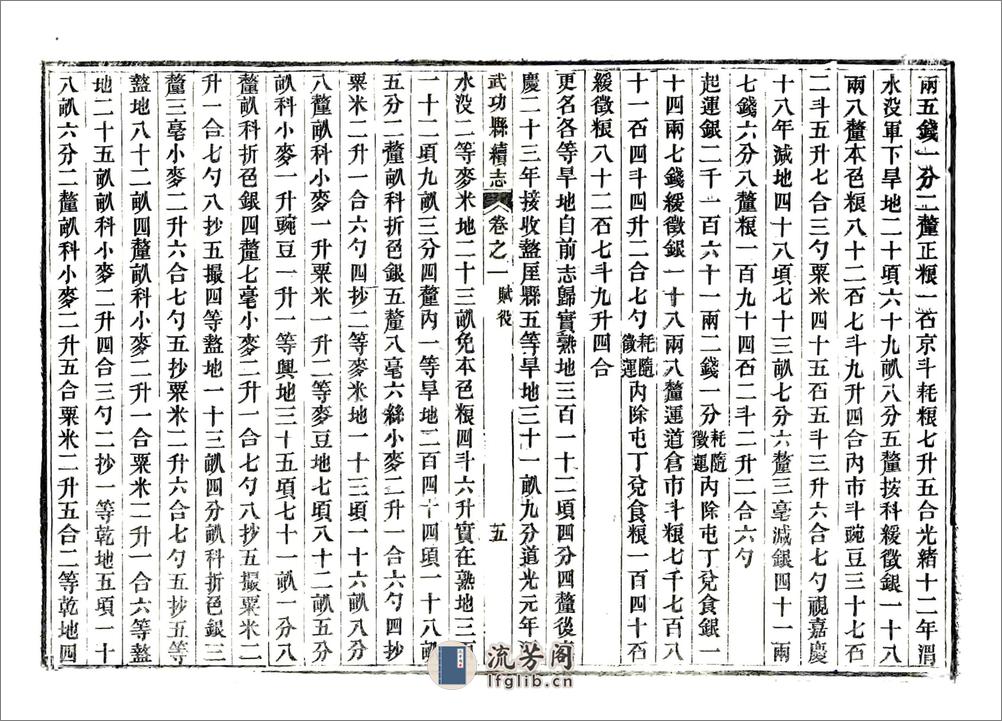 兩五錢一分二釐正粮一石京斗耗粮七升五合光緒十二年渭
水没軍下旱地二十頃六十九畝八分五釐按科緩徵銀一十八
兩八釐本色粮八十二石七斗九升四合內市斗豌豆三十七石
二斗五升七合三勺粟米四十五石五斗三升六合七勺視嘉慶
十八年減地四十八頃七十三畝七分六釐三毫減銀四十一兩
七錢六分八釐粮一百九十四石二斗二升二合六勺
起運銀二千一百六十一兩二錢一分耗隨徵運內除屯丁兌食銀一
十四兩七錢緩徵銀一十八兩八釐運道倉市斗粮七千七百八
十一石四斗四升二合七勺耗隨徵運內除屯丁兌食粮一百四十石
緩徵粮八十二石七斗九升四合
更名各等旱地自前志歸實熟地三百一十二頃四分四釐後嘉
慶二十三年接收盩厔縣五等旱地三十一畝九分道光元年渭
武功縣續志 卷之一 賦役 五
水没二等麥米地二十三畝免本色粮四斗六升實在熟地三百
一十二頃九畝三分四釐內一等旱地二百四十四頃一十八畝
五分二釐畝科折色銀五釐八毫六絲小麥二升一合六勺四抄
粟米二升一合六勺四抄二等麥米地一十三頃一十六畝八分
八釐畝科小麥一升粟米一升二等麥豆地七頃八十二畝五分
畝科小麥一升豌豆一升一等興地三十五頃七十一畝一分八
釐畝科折色銀四釐七毫小麥二升一合七勺八抄五撮粟米二
升一合七勺八抄五撮四等盩地一十三畝四分畝科折色銀三
釐三毫小麥二升六合七勺五抄粟米二升六合七勺五抄五等
盩地八十二畝四釐畝科小麥二升一合粟米二升一合六等盩
地二十五畝畝科小麥二升四合三勺二抄一等乾地五頃一十
八畝六分二釐畝科小麥二升五合粟米二升五合二等乾地四
流芳阁
lfglib.cn